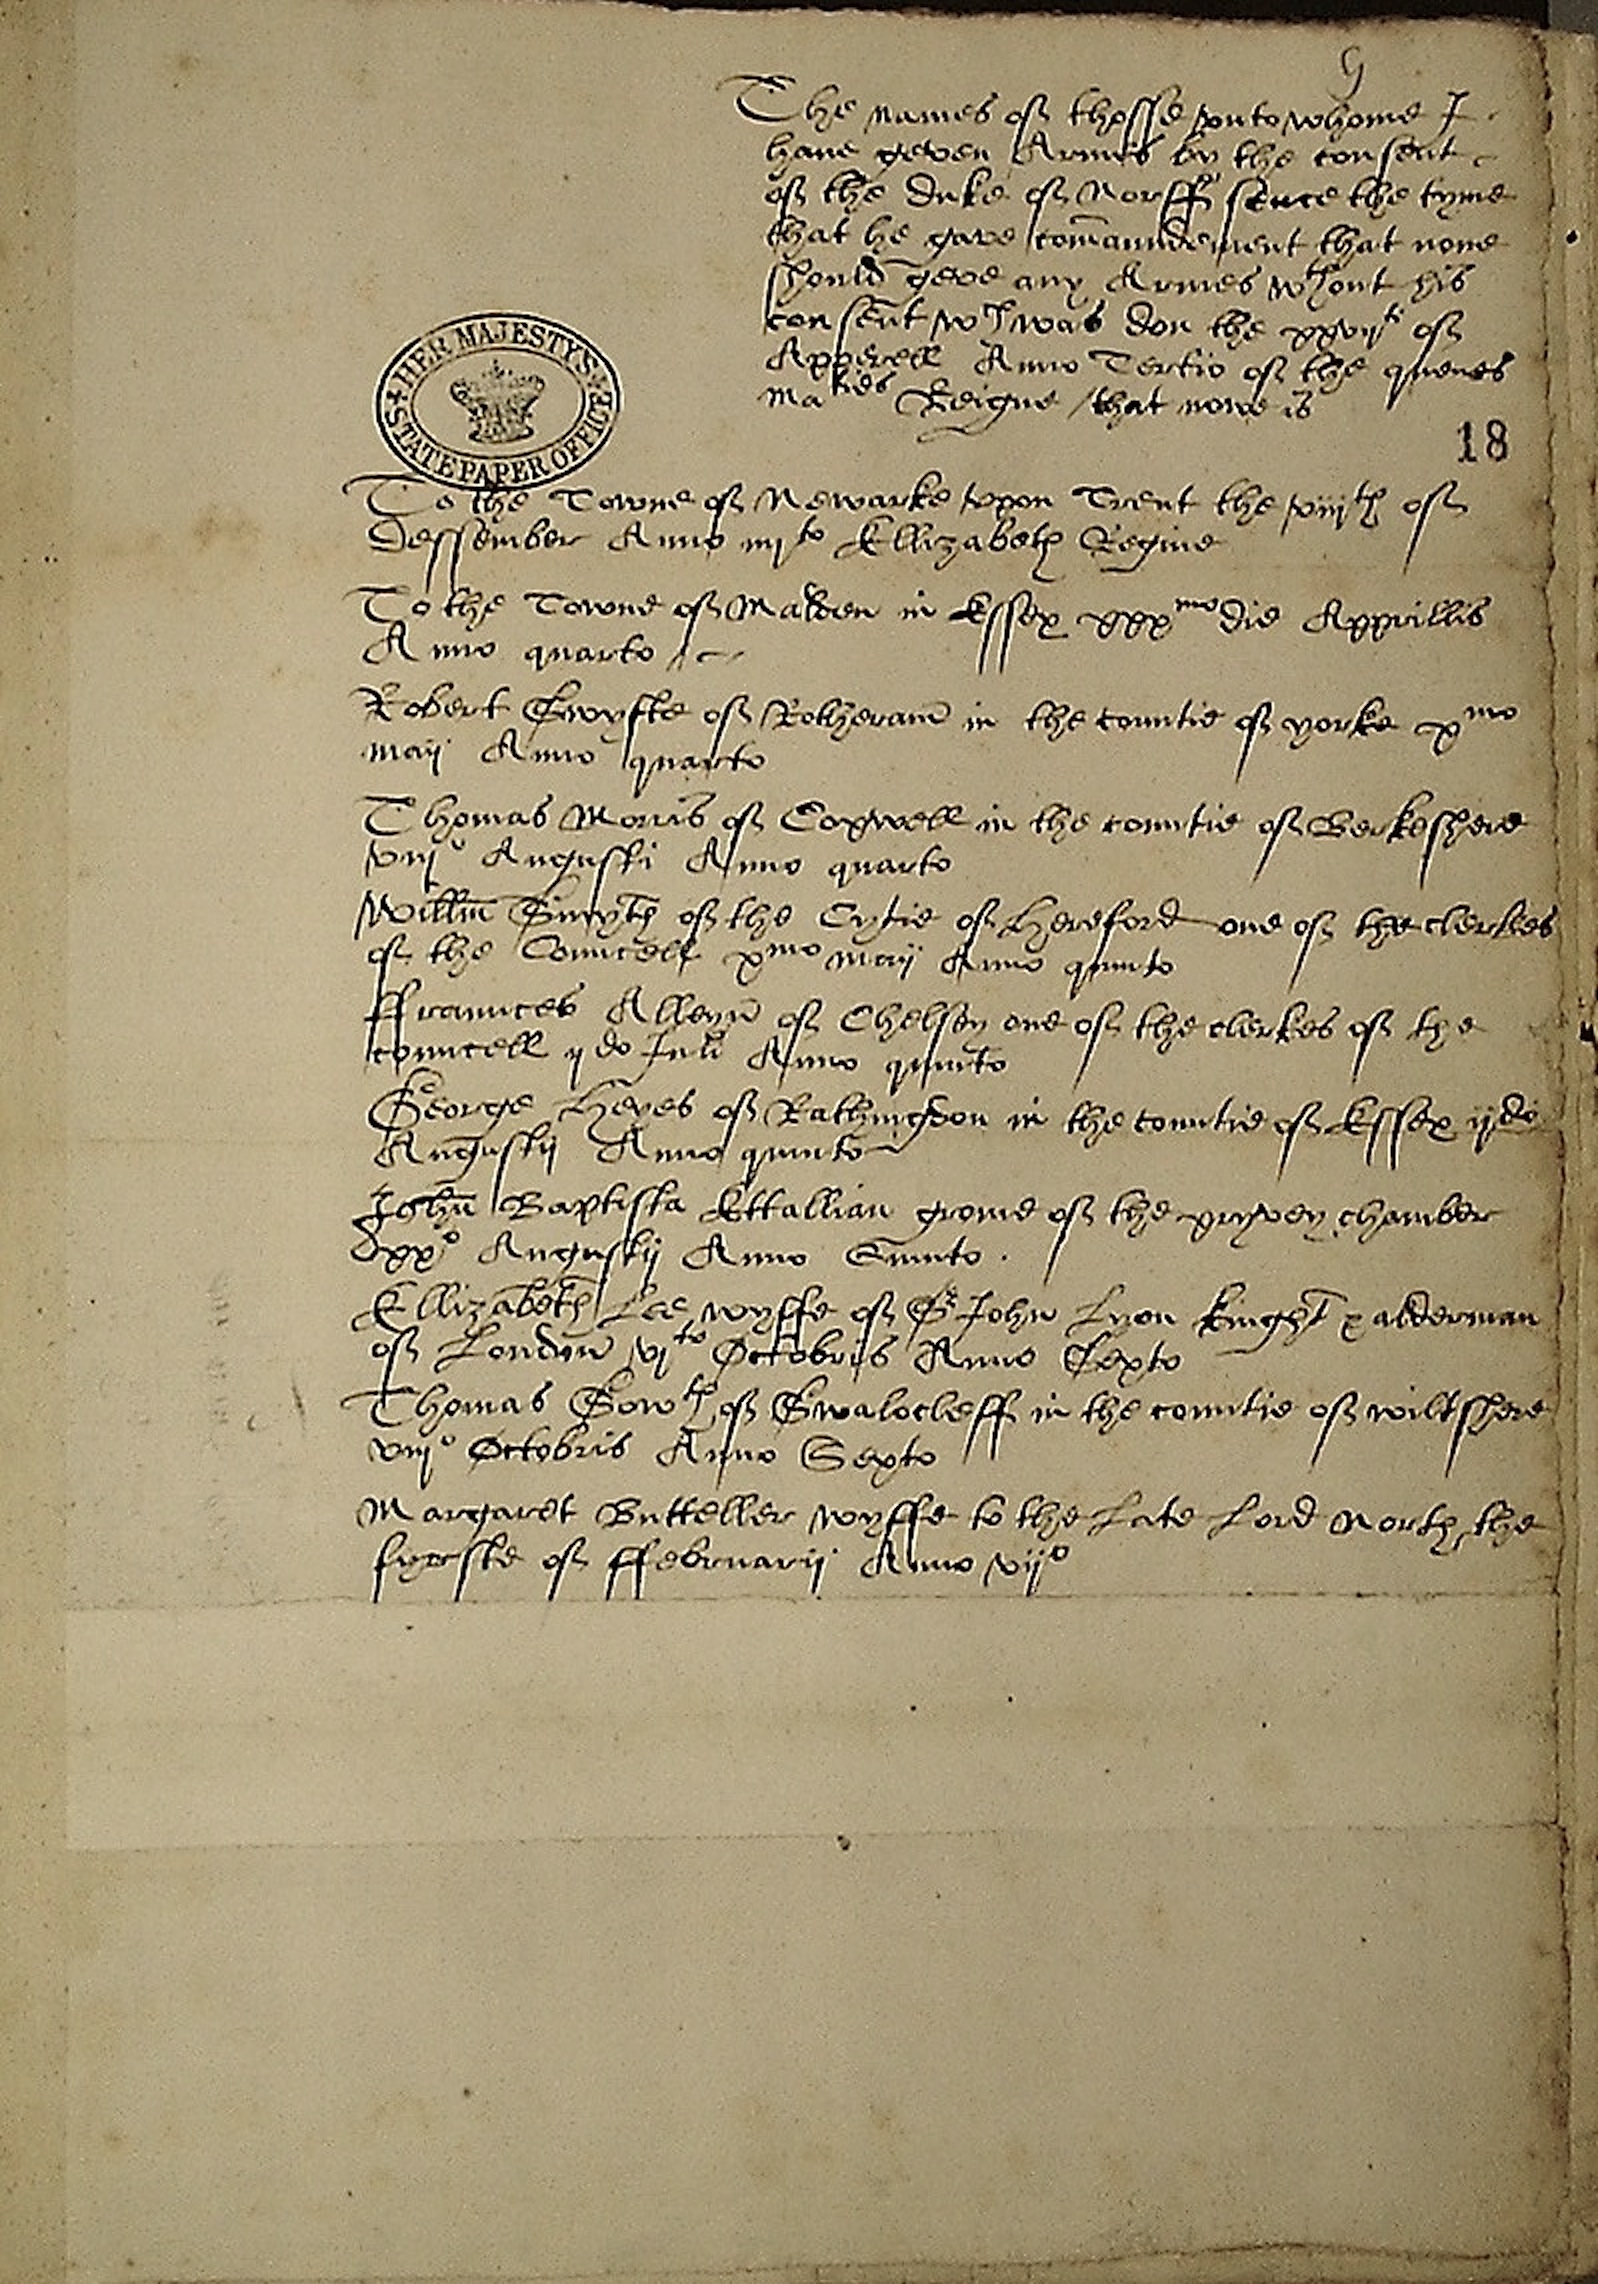 9
The names of thosse vnto whome I
haue geven Armes by the consent
of the duke of Norff sence the tyme
that he gave comaundement that none
should geve any Armes wthout his
consent wch was don the xxvijti of
Apperell Anno Tertio of the quenes
maties Reigne / that nowe is
HER MAJESTY'S STATE PAPER OFFICE
18
To the Towne of Newarke vpon Trent the viijth of
Dessember Anno iiijto Ellizabeth Regine
To the Towne of Malden in Essex xxxmo die Apprillis
Anno quarto
Robert Swyfte of Rotheram in the countie of yorke xmo
maij Anno quarto
Thomas Morris of Coxwell in the countie of Berkeshere
viijo Augusti Anno quarto
Willm Smyth of the Cytie of Hereford one of the clerkes
of the Councell xmo maij Anno quinto
ffraunces Alleyn of Chelsey one of the clerkes of the
councell ijdo Juli Anno quinto
George Heves of Rathingdon in the countie of Essex ijdo
Augustij Anno quinto
John Baptista Ettallian grome of the pryvey chamber
xxo Augustij Anno Quinto .
Ellizabeth Lee wyffe of Sr John Lyon kinght & alderman
of London vjto Octobris Anno Sexto
Thomas Sowth of Swalocleff in the countie of wiltshere
viijo Octobris Anno Sexto
Margaret Butteller wyffe to the Late Lord North the
fyrste of ffebruarij Anno vijo